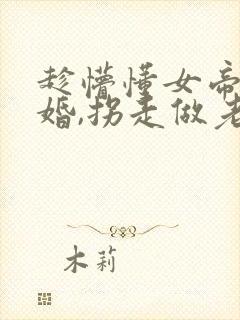 趁懵懂女帝
婚,拐走做老
木莉